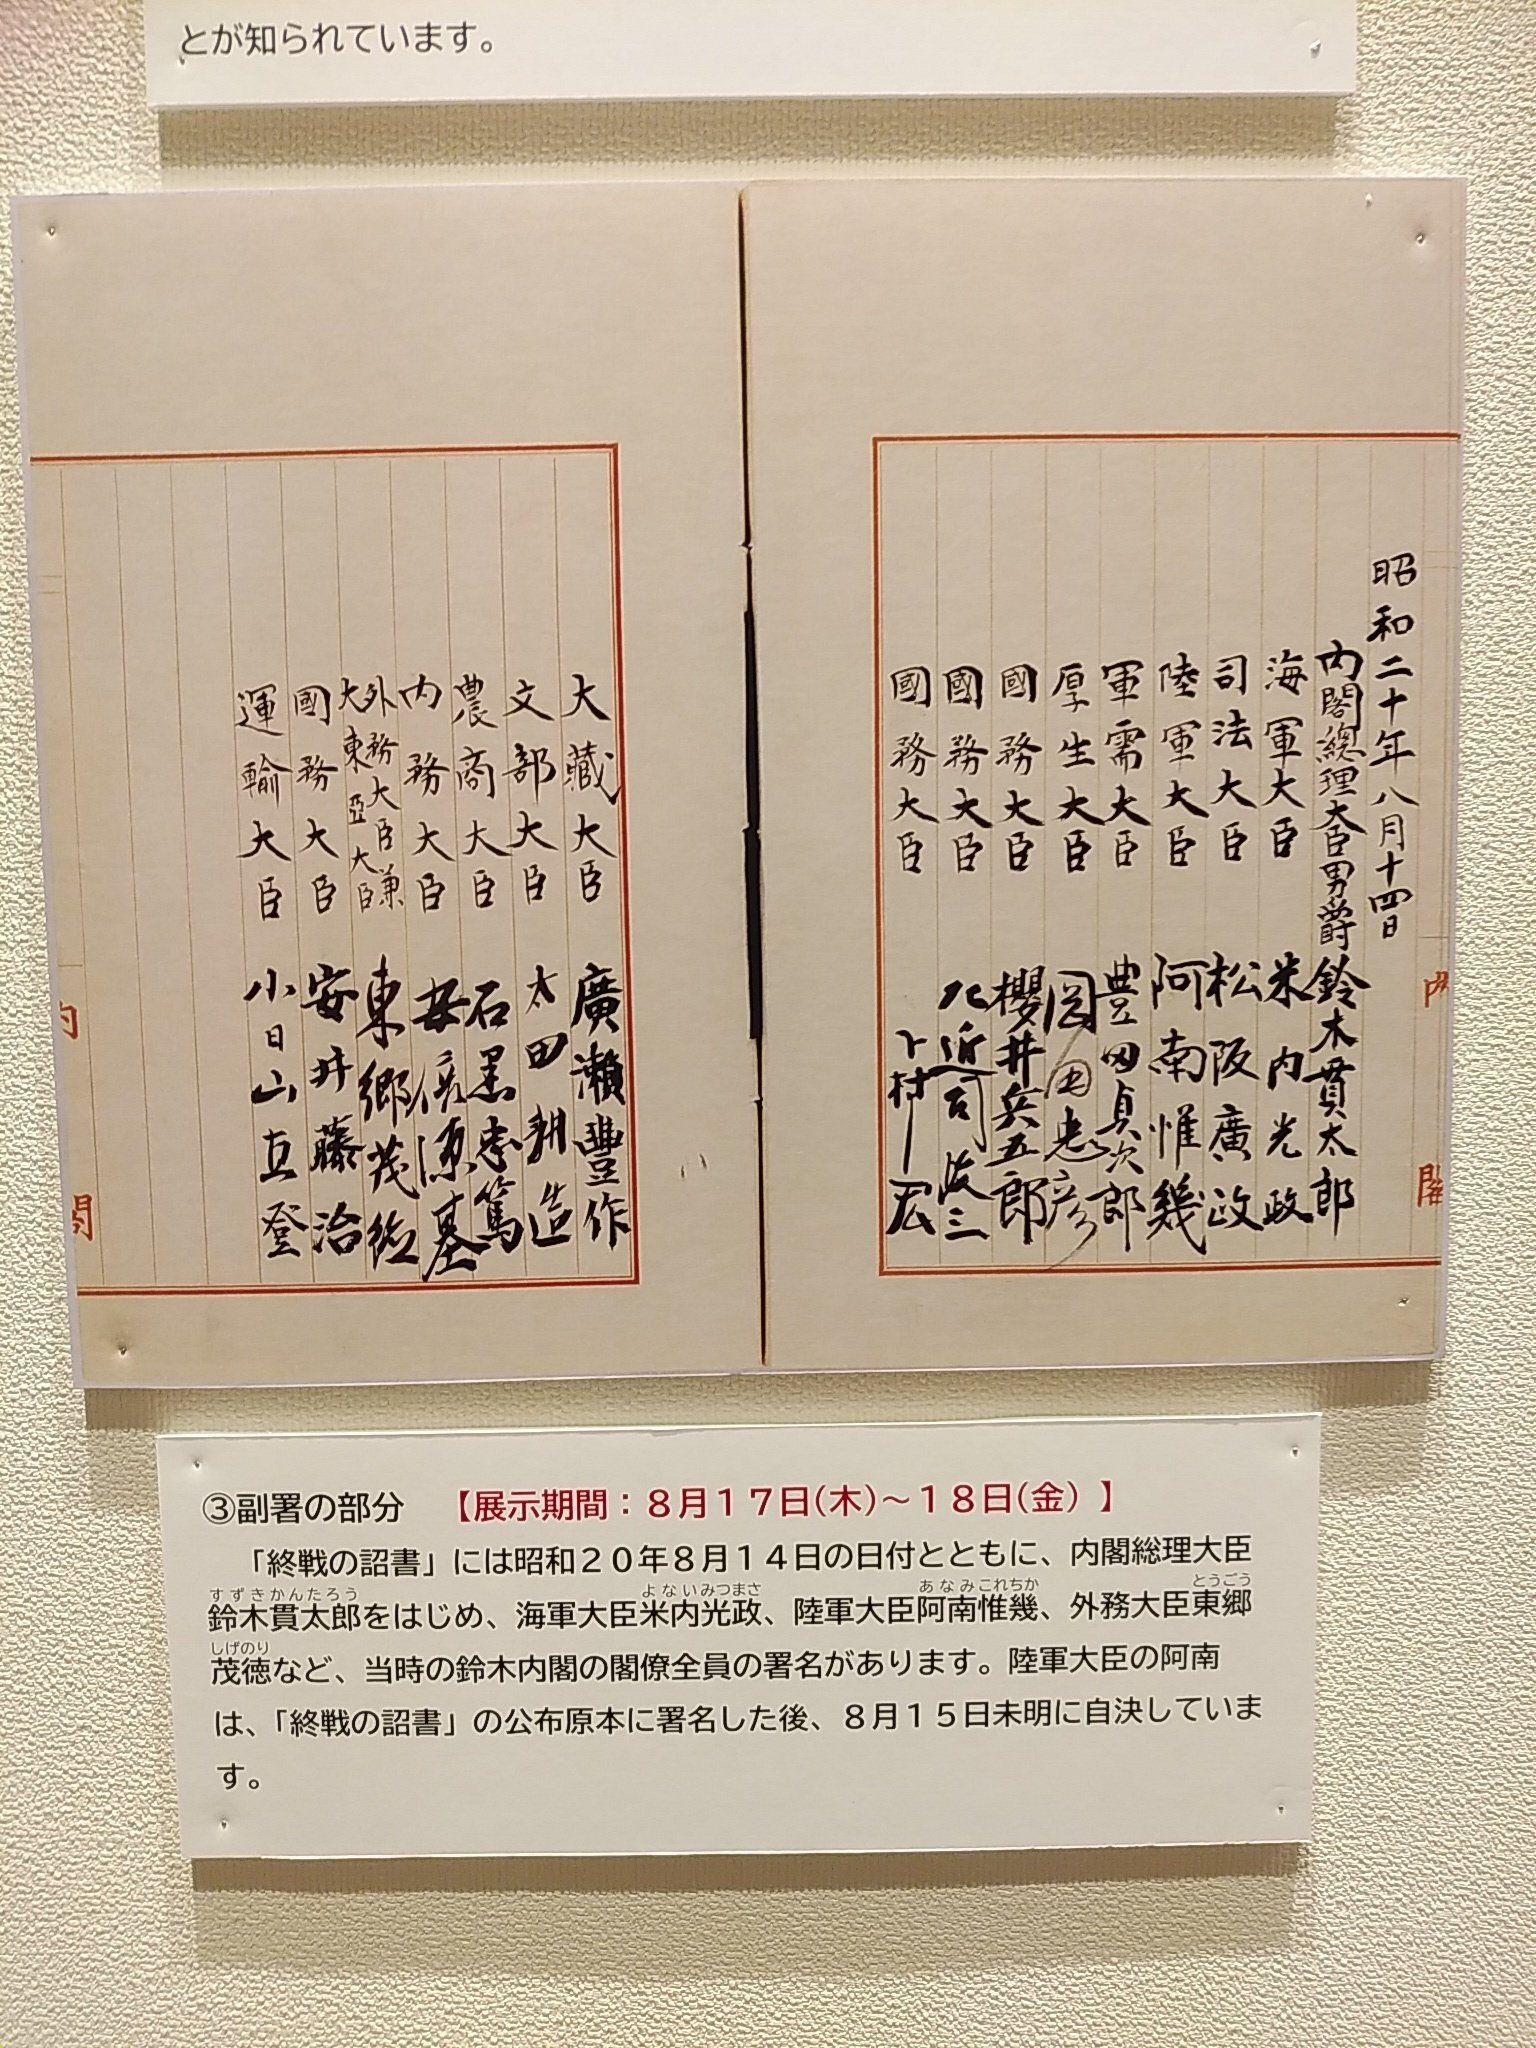 とが知られています。
昭和二十年八月十四日
内閣總理大臣男爵 鈴木貫太郎
海軍大臣 米内光政
司法大臣 松阪廣政
陸軍大臣 阿南惟幾
軍需大臣 豊田貞次郎
厚生大臣 岡田忠彦
國務大臣 櫻井兵五郎
國務大臣 左近司政三
國務大臣 下村宏
大藏大臣 廣瀬豐作
文部大臣 太田耕造
農商大臣 石黒忠篤
内務大臣 安倍源基
外務大臣兼
大東亞大臣 東郷茂徳
國務大臣 安井藤治
運輸大臣 小日山直登
内閣
内閣
③副署の部分 【展示期間：８月１７日(木)～１８日(金)】
「終戦の詔書」には昭和２０年８月１４日の日付とともに、内閣総理大臣
すずきかんたろう よないみつまさ あなみこれちか とうごう
鈴木貫太郎をはじめ、海軍大臣米内光政、陸軍大臣阿南惟幾、外務大臣東郷
しげのり
茂徳など、当時の鈴木内閣の閣僚全員の署名があります。陸軍大臣の阿南
は、「終戦の詔書」の公布原本に署名した後、８月１５日未明に自決していま
す。